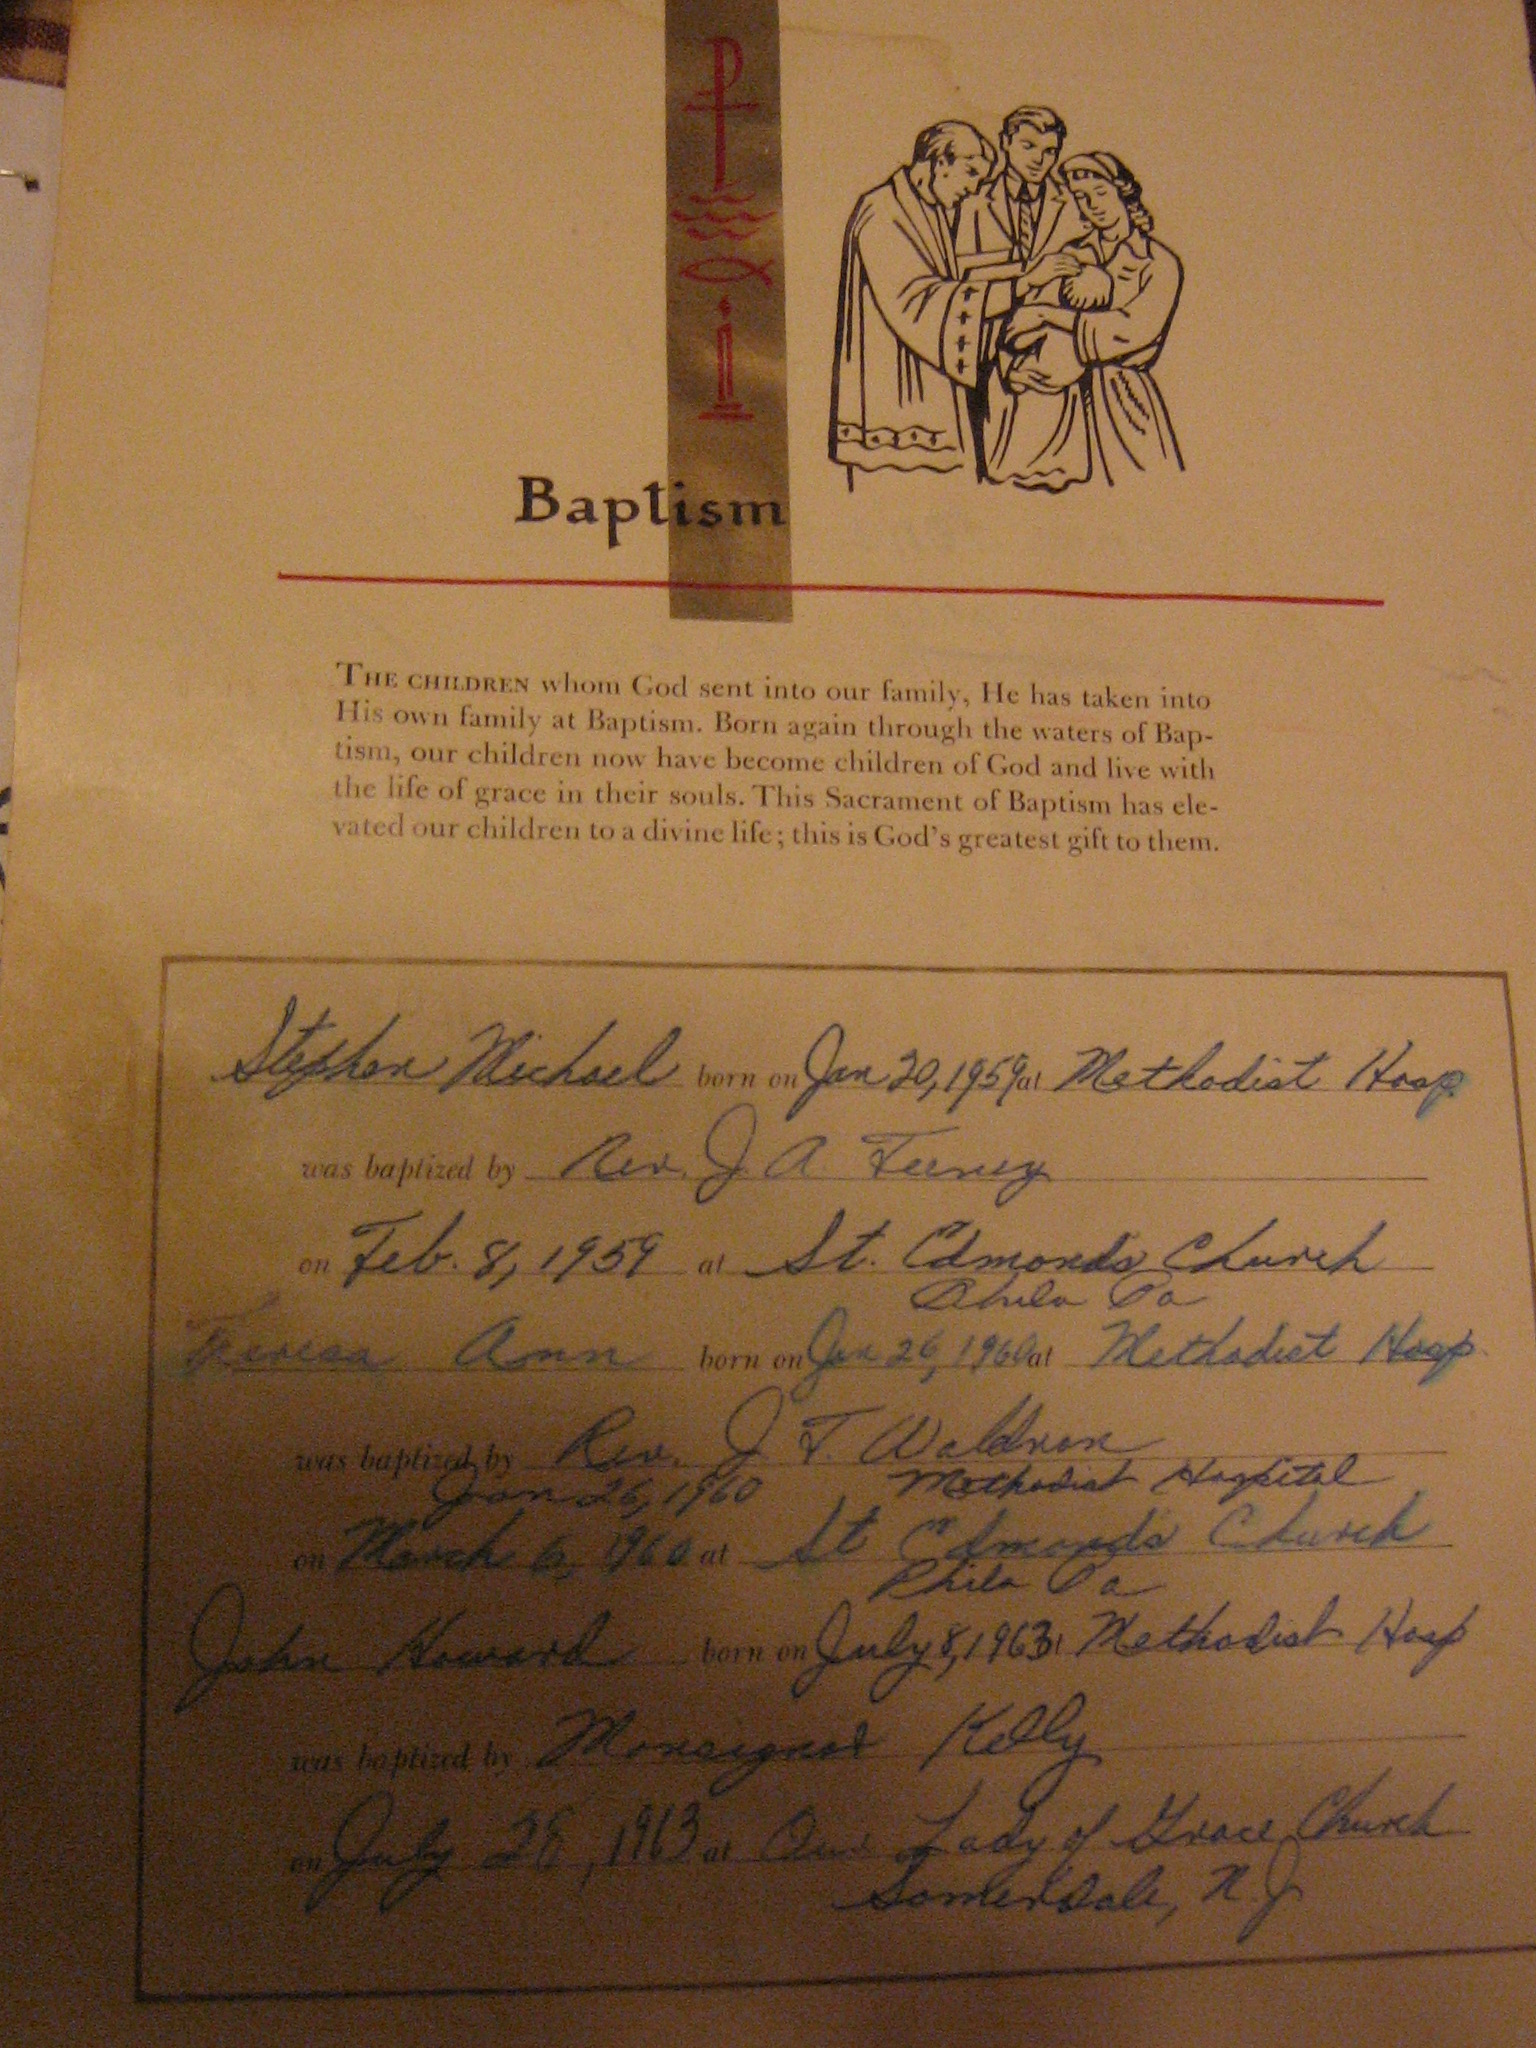 Baptism
THE CHILDREN whom God sent into our family, He has taken into
His own family at Baptism. Born again through the waters of Bap-
tism, our children now have become children of God and live with
the life of grace in their souls. This Sacrament of Baptism has ele-
vated our children to a divine life; this is God's greatest gift to them.
Stephen Michael born on Jan 20, 1959 at Methodist Hosp.
was baptized by Rev. J. A. Feeney
on Feb. 8, 1959 at St. Edmonds Church
Phila Pa
Teresa Ann born on Jan 26, 1960 at Methodist Hosp.
was baptized by Rev. J. T. Waldron
Jan 26, 1960 Methodist Hospital
on March 6, 1960 at St Edmonds Church
Phila Pa
John Howard born on July 8, 1963 at Methodist Hosp
was baptized by Monsignor Kelly
on July 28, 1963 at Our Lady of Grace Church
Somerdale, N.J